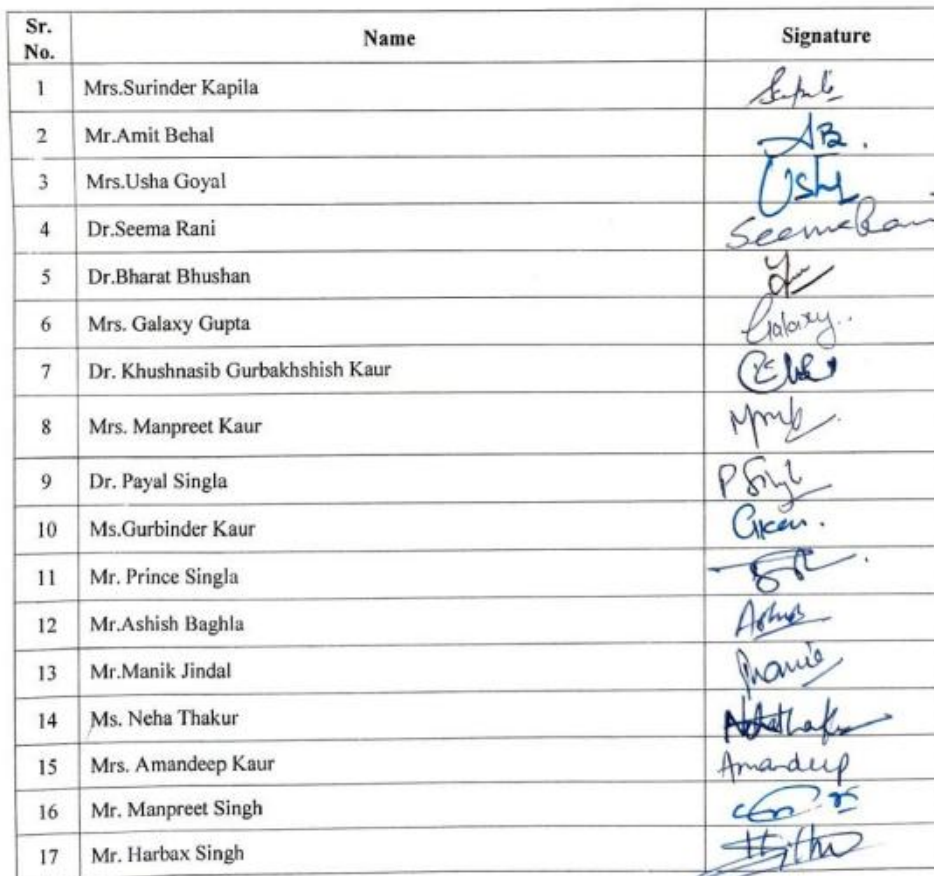 Sr. No. Name Signature
1 Mrs.Surinder Kapila
2 Mr.Amit Behal AB.
3 Mrs.Usha Goyal Usha
4 Dr.Seema Rani Seema Rani
5 Dr.Bharat Bhushan
6 Mrs. Galaxy Gupta Galaxy..
7 Dr. Khushnasib Gurbakhshish Kaur
8 Mrs. Manpreet Kaur
9 Dr. Payal Singla P Singl
10 Ms.Gurbinder Kaur
11 Mr. Prince Singla
12 Mr.Ashish Baghla
13 Mr.Manik Jindal
14 Ms. Neha Thakur
15 Mrs. Amandeep Kaur Amandeep
16 Mr. Manpreet Singh
17 Mr. Harbax Singh